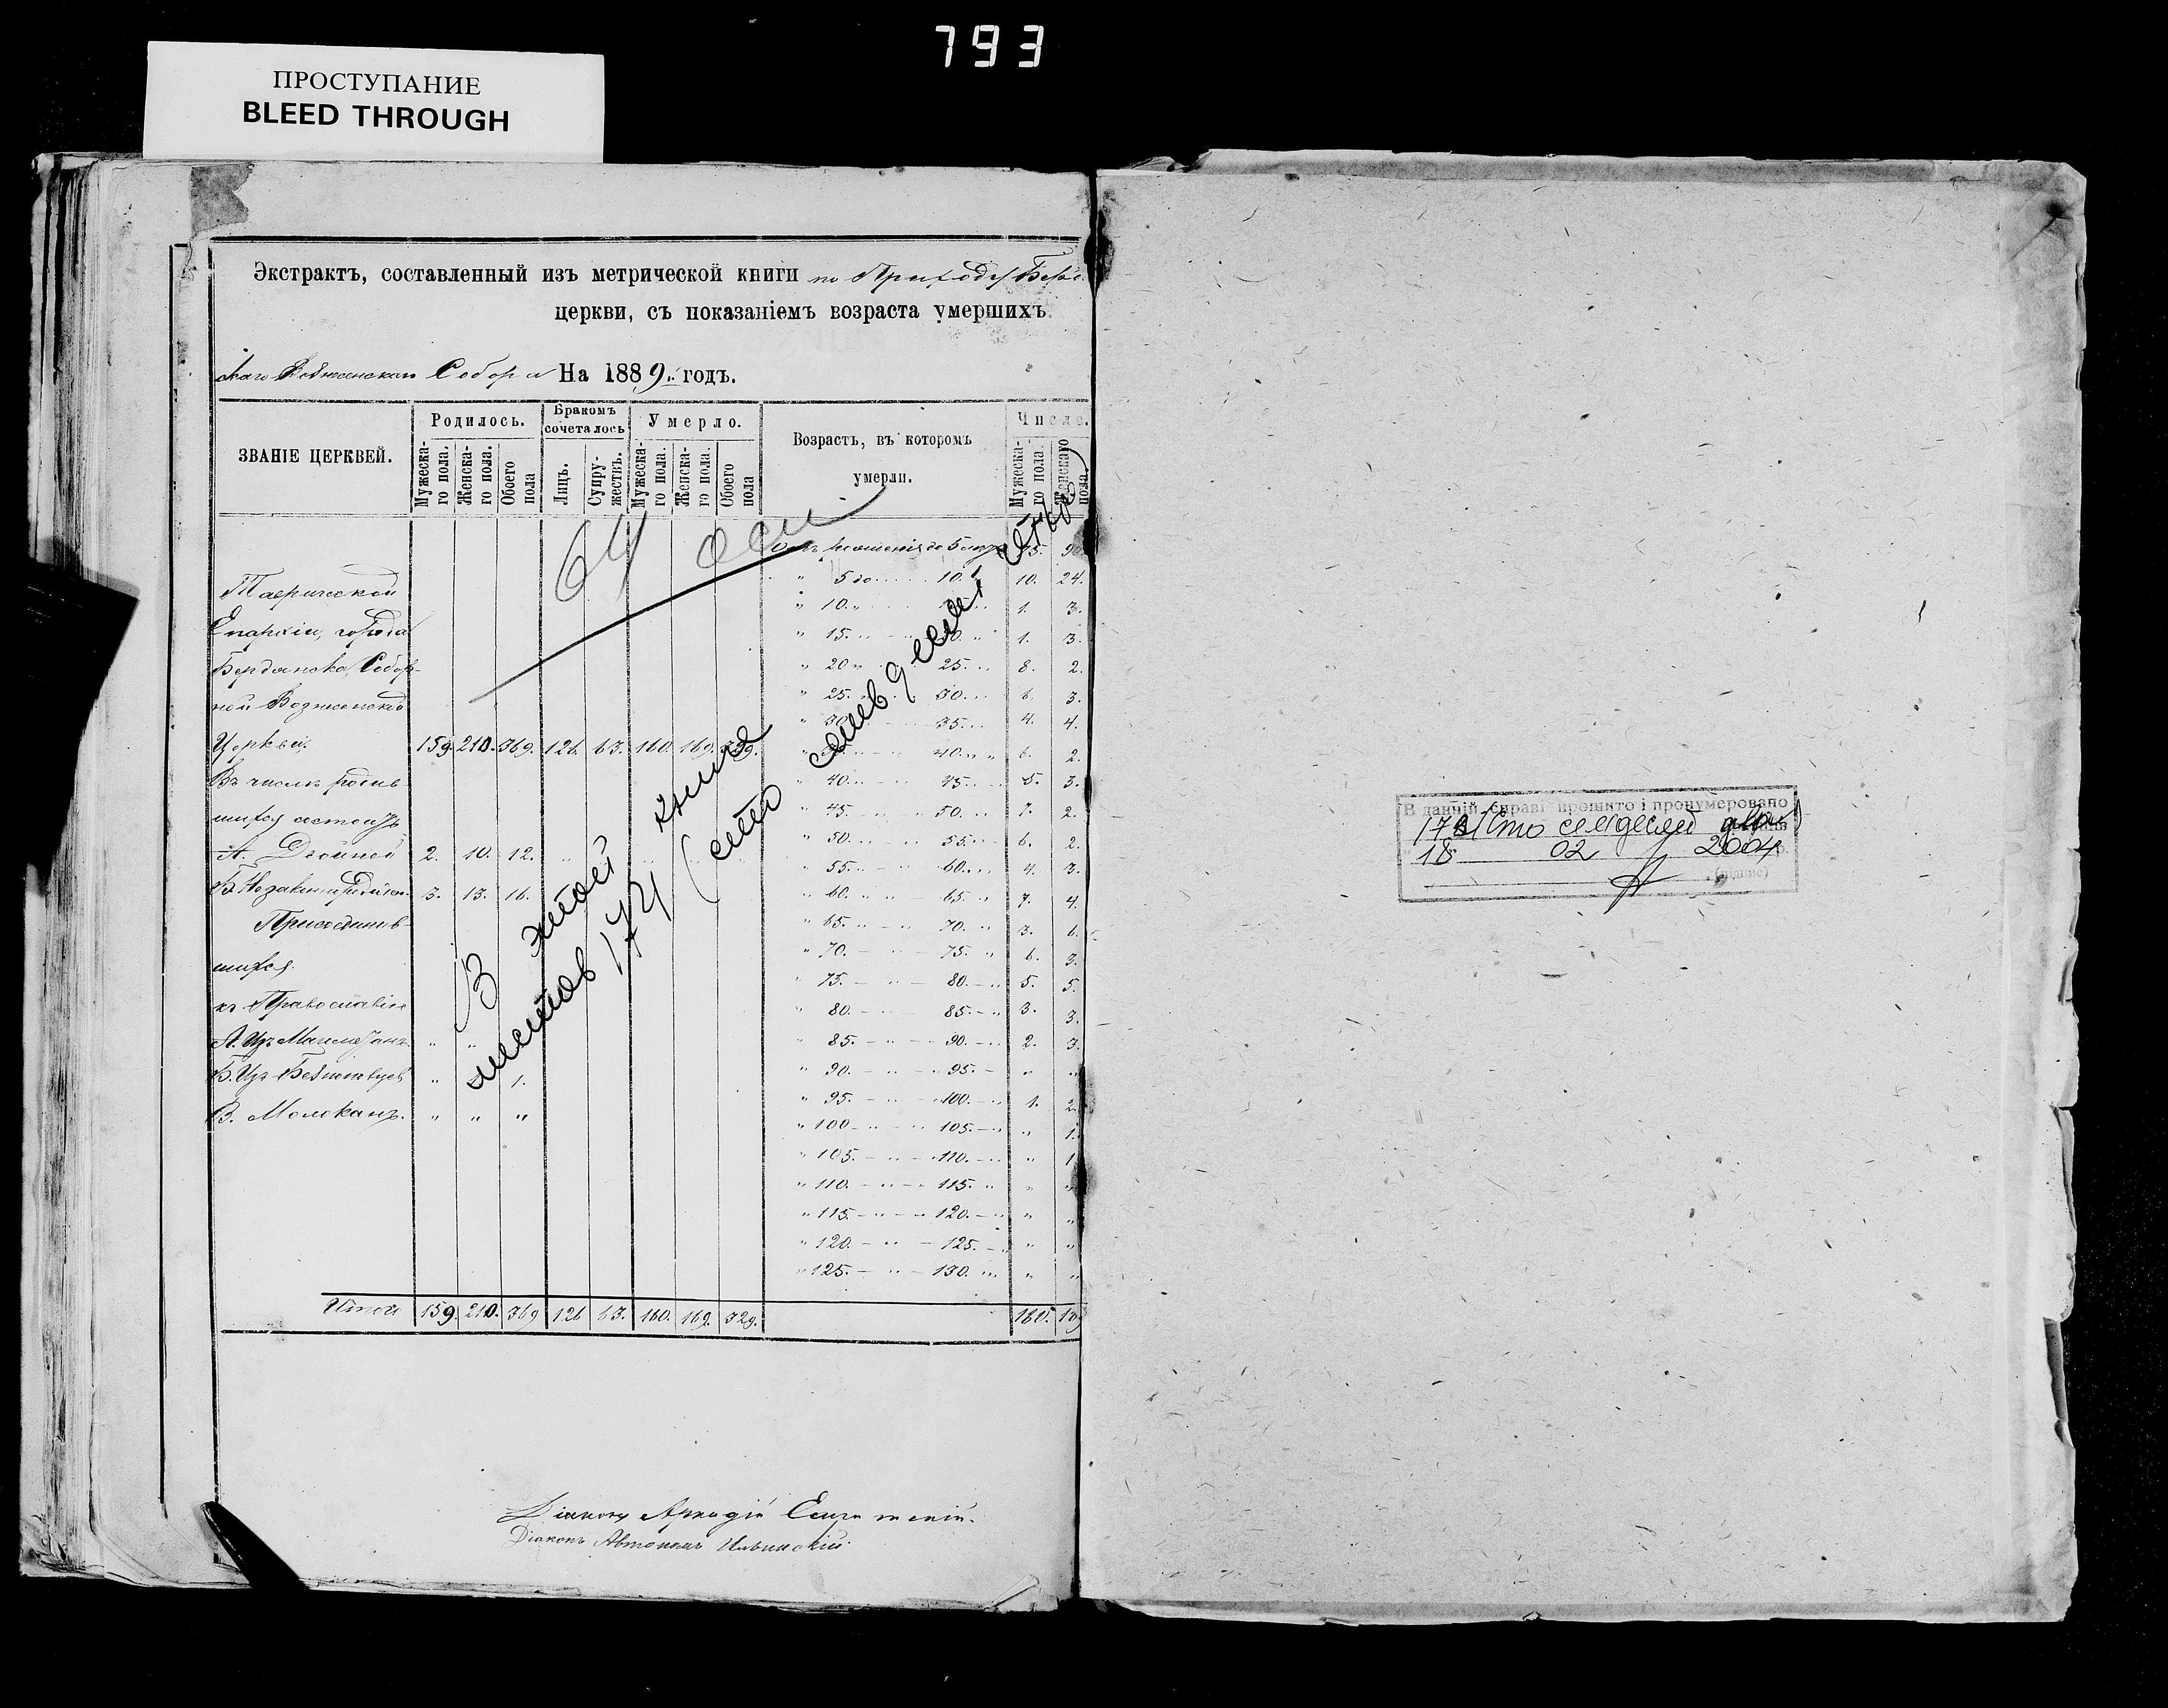 793
ПРОСТУПАНИЕ
BLEED THROUGH
Экстрактъ, составленный изъ метрической книги по Приходу Бердян
церкви, съ показаніемъ возраста умершихъ
скаго Вознесенскаго Собора На 1889. годъ.
ЗВАНІЕ ЦЕРКВЕЙ.
Родилось.
Бракомъ сочеталось
Умерло.
Возрастъ, въ которомъ умерли.
Число.
Мужескаго пола.
Женскаго пола.
Обоего пола
Лицъ.
Супружествъ.
Мужескаго пола.
Женскаго пола.
Обоего пола
Мужескаго пола.
Женскаго пола.
64
Отъ рожденія до 5 лѣтъ 75. 90
" 5 до 10. 10. 24.
" 10. " 1. 3.
" 15. " 20. " 1. 3.
" 20 " 25. " 8. 2.
" 25. 30. 6. 3.
" 30 35. 4. 4.
40. " 6. 2.
" 40. " 45. 5. 3.
" 45. " 50. " 7. 2.
" 50. " 55. " 6. 2.
" 55. " 60. " 4. 3.
" 60. " 65. " 7. 4.
" 65. " 70. " 3. 6.
" 70. " 75. " 6. 3.
" 75. " 80. " 5. 5.
" 80. " 85. " 3. 3.
" 85. " 90. " 2. 3.
" 90. " 95. " " "
" 95. " 100. " 1. 2.
" 100 " 105. " " 1.
" 105. " 110. " " 1
" 110. " 115. " " "
" 115 " 120. " " "
" 120. " 125. " " "
" 125. " 130. " " "
Таврической
Епархіи, города
Бердянска, Собор-
ной Вознесенской
Церкви. 159. 210. 369. 126. 63. 160. 169. 329.
Въ числѣ родив-
шихся состоитъ
А. Двойней 2. 10. 12.
Б. Незаконнорожден. 3. 13. 16.
Присоединив-
шихся
къ Православію
А. Изъ Магометанъ " "
Б. Изъ Безпоповцевъ " 1.
В. Молоканъ. " " "
В этой книге
листов 174 (сто семьдесят четыре)
Итого 159. 210. 369 126 63. 160. 169. 329. 160. 169
Діаконъ Автономъ Ильинскій
В данній справі прошито і пронумеровано
18 02 2004
(підпис)